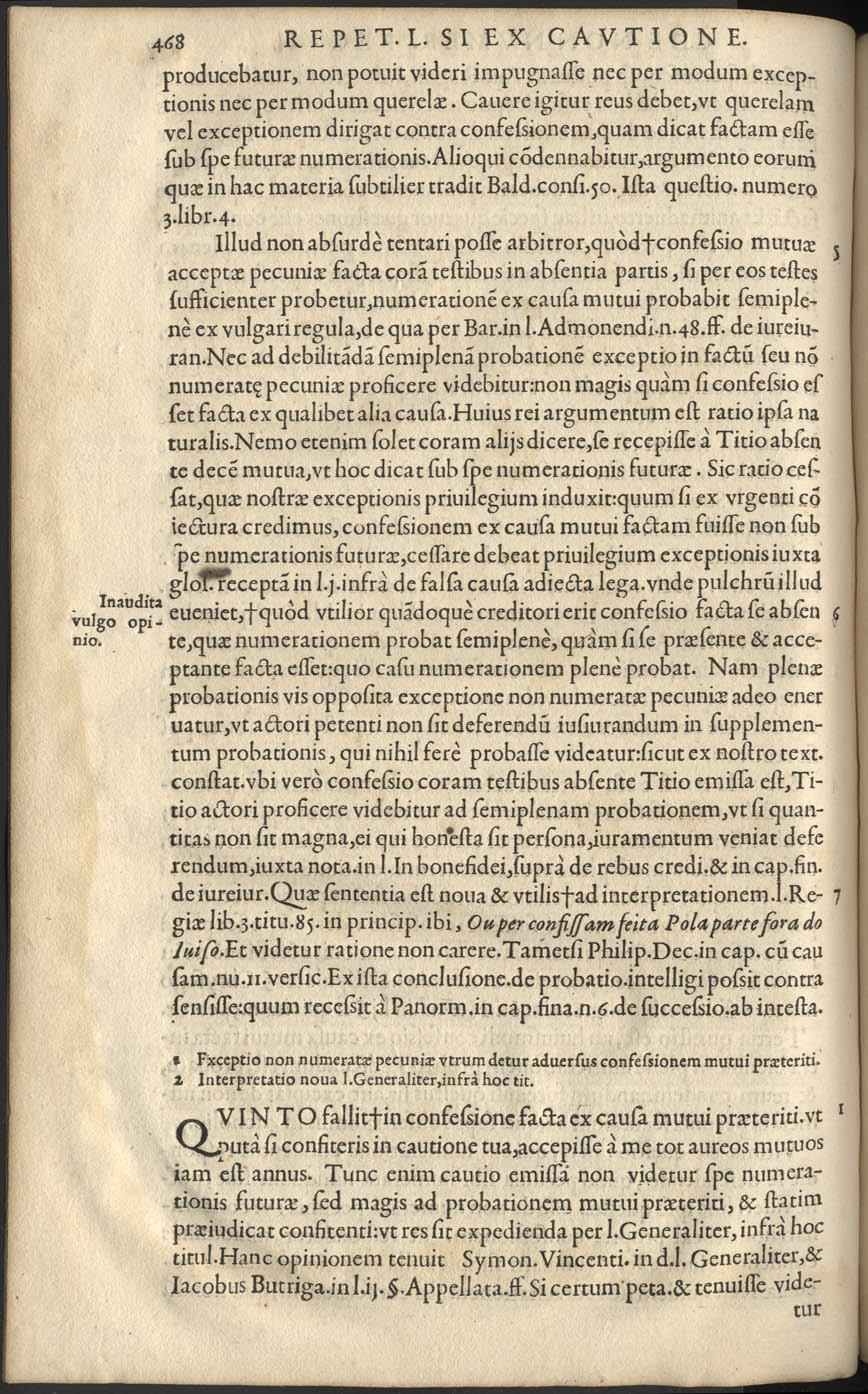 468 REPET. L. SI EX CAVTIONE.
producebatur, non potuit videri impugnaſſe nec per modum excep-
tionis nec per modum querelæ. Cauere igitur reus debet,vt querelam
vel exceptionem dirigat contra confeſsionem,quam dicat factam eſſe
ſub ſpe futuræ numerationis.Alioqui cõdennabitur,argumento eorum
quæ in hac materia ſubtilier tradit Bald.conſi.50. Iſta queſtio. numero
3.libr.4.
Illud non abſurdè tentari poſſe arbitror,quòd†confeſsio mutuæ 5
acceptæ pecuniæ facta corã teſtibus in abſentia partis, ſi per eos teſtes
ſufficienter probetur,numerationẽ ex cauſa mutui probabit ſemiple-
nè ex vulgari regula,de qua per Bar.in l.Admonendi.n.48.ff. de iureiu-
ran.Nec ad debilitãdã ſemiplenã probationẽ exceptio in factũ ſeu nõ
numeratę pecuniæ proficere videbitur:non magis quàm ſi confeſsio eſ
ſet facta ex qualibet alia cauſa.Huius rei argumentum eſt ratio ipſa na
turalis.Nemo etenim ſolet coram alijs dicere,ſe recepiſſe à Titio abſen
te decẽ mutua,vt hoc dicat ſub ſpe numerationis futuræ. Sic ratio ceſ-
ſat,quæ noſtræ exceptionis priuilegium induxit:quum ſi ex vrgenti cõ
iectura credimus, confeſsionem ex cauſa mutui factam fuiſſe non ſub
ſpe numerationis futuræ,ceſſare debeat priuilegium exceptionis iuxta
gloſ. receptã in l.j.infrà de falſa cauſa adiecta lega.vnde pulchrũ illud
Inaudita vulgo opi-nio.
eueniet,†quòd vtilior quãdoquè creditori erit confeſsio facta ſe abſen 6
te,quæ numerationem probat ſemiplenè, quàm ſi ſe præſente & acce-
ptante facta eſſet:quo caſu numerationem plenè probat. Nam plenæ
probationis vis oppoſita exceptione non numeratæ pecuniæ adeo ener
uatur,vt actori petenti non ſit deferendũ iuſiurandum in ſupplemen-
tum probationis, qui nihil ferè probaſſe videatur:ſicut ex noſtro text.
conſtat.vbi verò confeſsio coram teſtibus abſente Titio emiſſa eſt,Ti-
tio actori proficere videbitur ad ſemiplenam probationem,vt ſi quan-
titas non ſit magna,ei qui honeſta ſit perſona,iuramentum veniat defe
rendum,iuxta nota.in l.In bonefidei,ſuprà de rebus credi.& in cap.fin.
de iureiur.Quæ ſententia eſt noua & vtilis†ad interpretationem.l.Re- 7
giæ lib.3.titu.85. in princip. ibi, Ou per confiſſam feita Pola parte fora do
Iuiſo.Et videtur ratione non carere.Tametſi Philip.Dec.in cap. cũ cau
ſam.nu.11.verſic.Ex iſta concluſione.de probatio.intelligi poſsit contra
ſenſiſſe:quum receſsit à Panorm.in cap.fina.n.6.de ſucceſsio.ab inteſta.
1 Exceptio non numeratæ pecuniæ vtrum detur aduerſus confeſsionem mutui præteriti.
2 Interpretatio noua l.Generaliter,infrà hoc tit.
QVINTO fallit†in confeſsione facta ex cauſa mutui præteriti.vt 1
putà ſi confiteris in cautione tua,accepiſſe à me tot aureos mutuos
iam eſt annus. Tunc enim cautio emiſſa non videtur ſpe numera-
tionis futuræ, ſed magis ad probationem mutui præteriti, & ſtatim
præiudicat confitenti:vt res ſit expedienda per l.Generaliter, infrà hoc
titul.Hanc opinionem tenuit Symon.Vincenti. in d.l. Generaliter,&
Iacobus Butriga.in l.ij.§.Appellata.ff. Si certum peta.& tenuiſſe vide-
tur